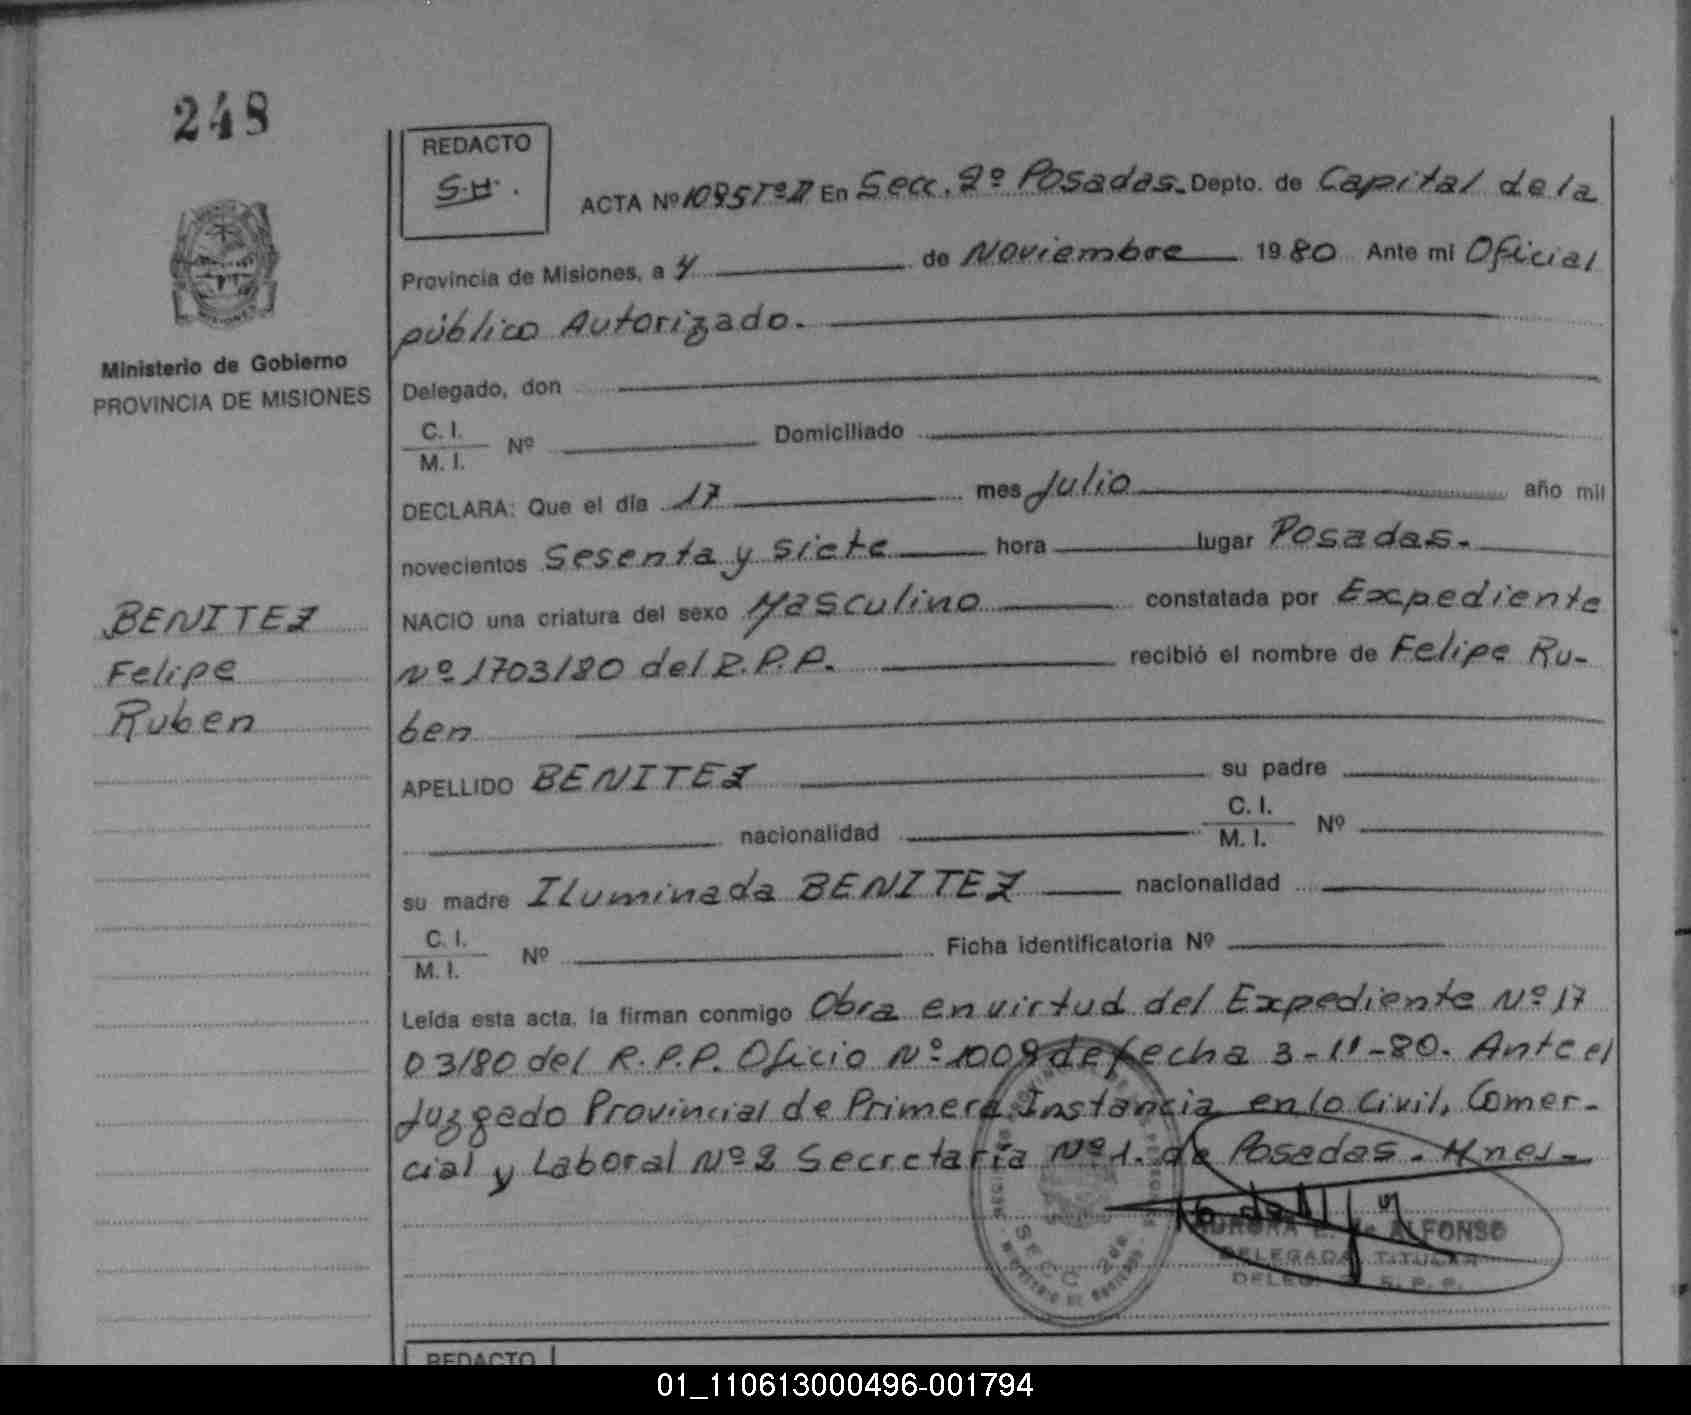 248
REDACTO
S.H.
ACTA Nº 1095 Tº II En Secc. 2º Posadas. Depto. de Capital de la
Provincia de Misiones, a 4 de Noviembre 1980 Ante mi Oficial
público Autorizado.
Ministerio de Gobierno
PROVINCIA DE MISIONES
Delegado, don
C. I.
M. I. Nº Domiciliado
DECLARA: Que el día 17 mes Julio año mil
novecientos Sesenta y siete hora lugar Posadas.
BENITEZ
Felipe
Ruben
NACIO una criatura del sexo Masculino constatada por Expediente
Nº 1703/80 del R.P.P. recibió el nombre de Felipe Ru-
ben
APELLIDO BENITEZ su padre
nacionalidad C. I.
M. I. Nº
su madre Iluminada BENITEZ nacionalidad
C. I.
M. I. Nº Ficha identificatoria Nº
Leída esta acta, la firman conmigo Obra en virtud del Expediente Nº 17
03/80 del R.P.P. Oficio Nº 1009 de fecha 3-11-80. Ante el
Juzgado Provincial de Primera Instancia en lo Civil, Comer-
cial y Laboral Nº 2 Secretaría Nº 1. de Posadas. Mnes.
SECC 2da
AURORA E. de ALFONSO
DELEGADA TITULAR
R. P. P.
REDACTO
01_110613000496-001794